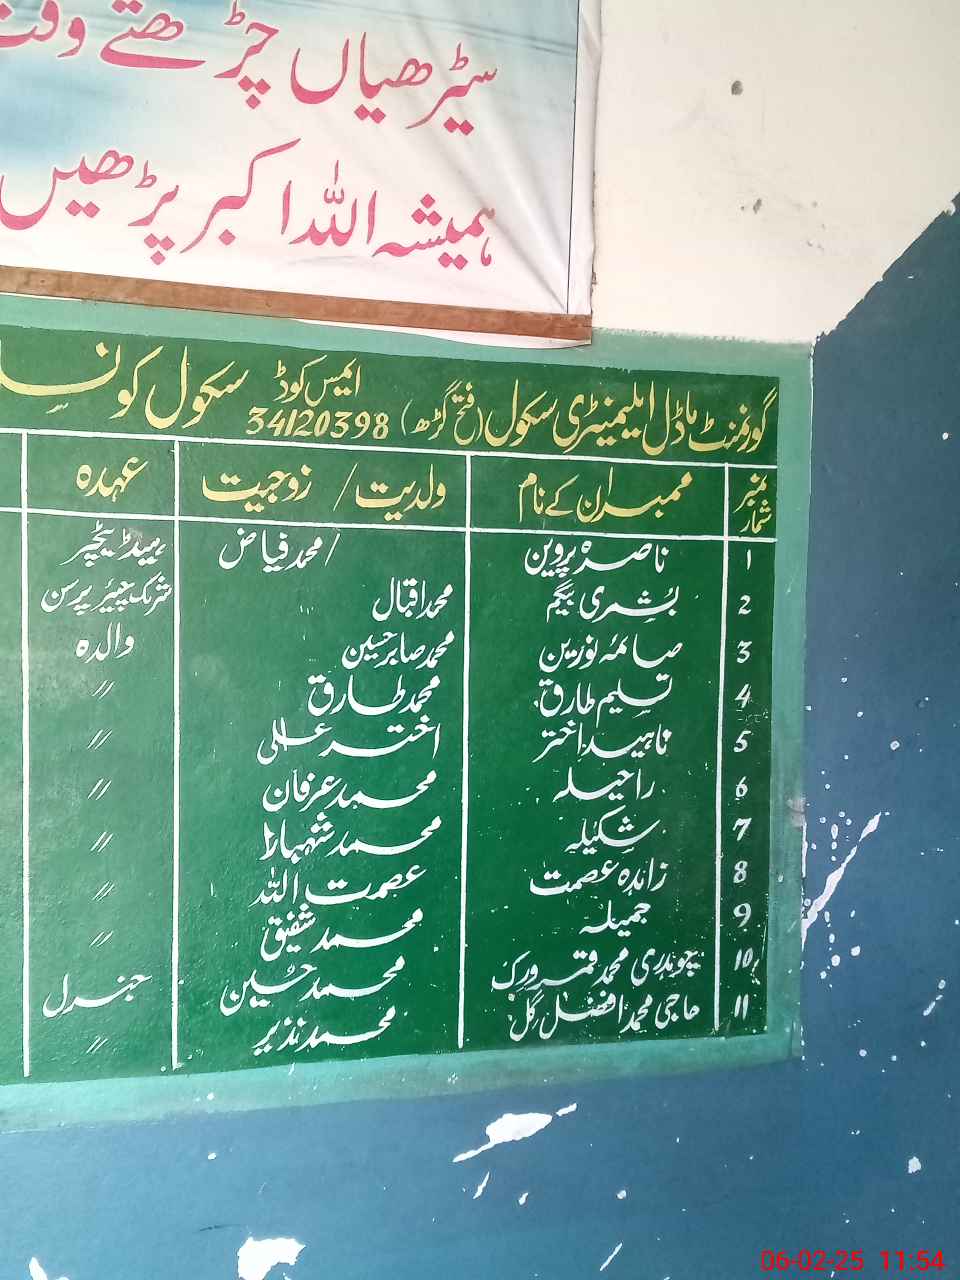 سیڑھیاں چڑھتے وقت
ہمیشہ اللہ اکبر پڑھیں
گورنمنٹ ماڈل ایلیمنٹری سکول (فتح گڑھ) ایمس کوڈ 34120398 سکول کونسل
نمبر شمار ممبران کے نام ولدیت / زوجیت عہدہ
1 ناصرہ پروین / محمد فیاض ہیڈ ٹیچر
2 بشریٰ بیگم محمد اقبال شریک چیئر پرسن
3 صائمہ نورین محمد صابر حسین والدہ
4 تسلیم طارق محمد طارق //
5 ناہید اختر اختر علی //
6 راحیلہ محمد عرفان //
7 شکیلہ محمد شہباز //
8 زاہدہ عصمت عصمت اللہ //
9 جمیلہ محمد شفیق //
10 چوہدری محمد قمر ورک محمد حسین جنرل
11 حاجی محمد افضل گل محمد نذیر //
06-02-25 11:54